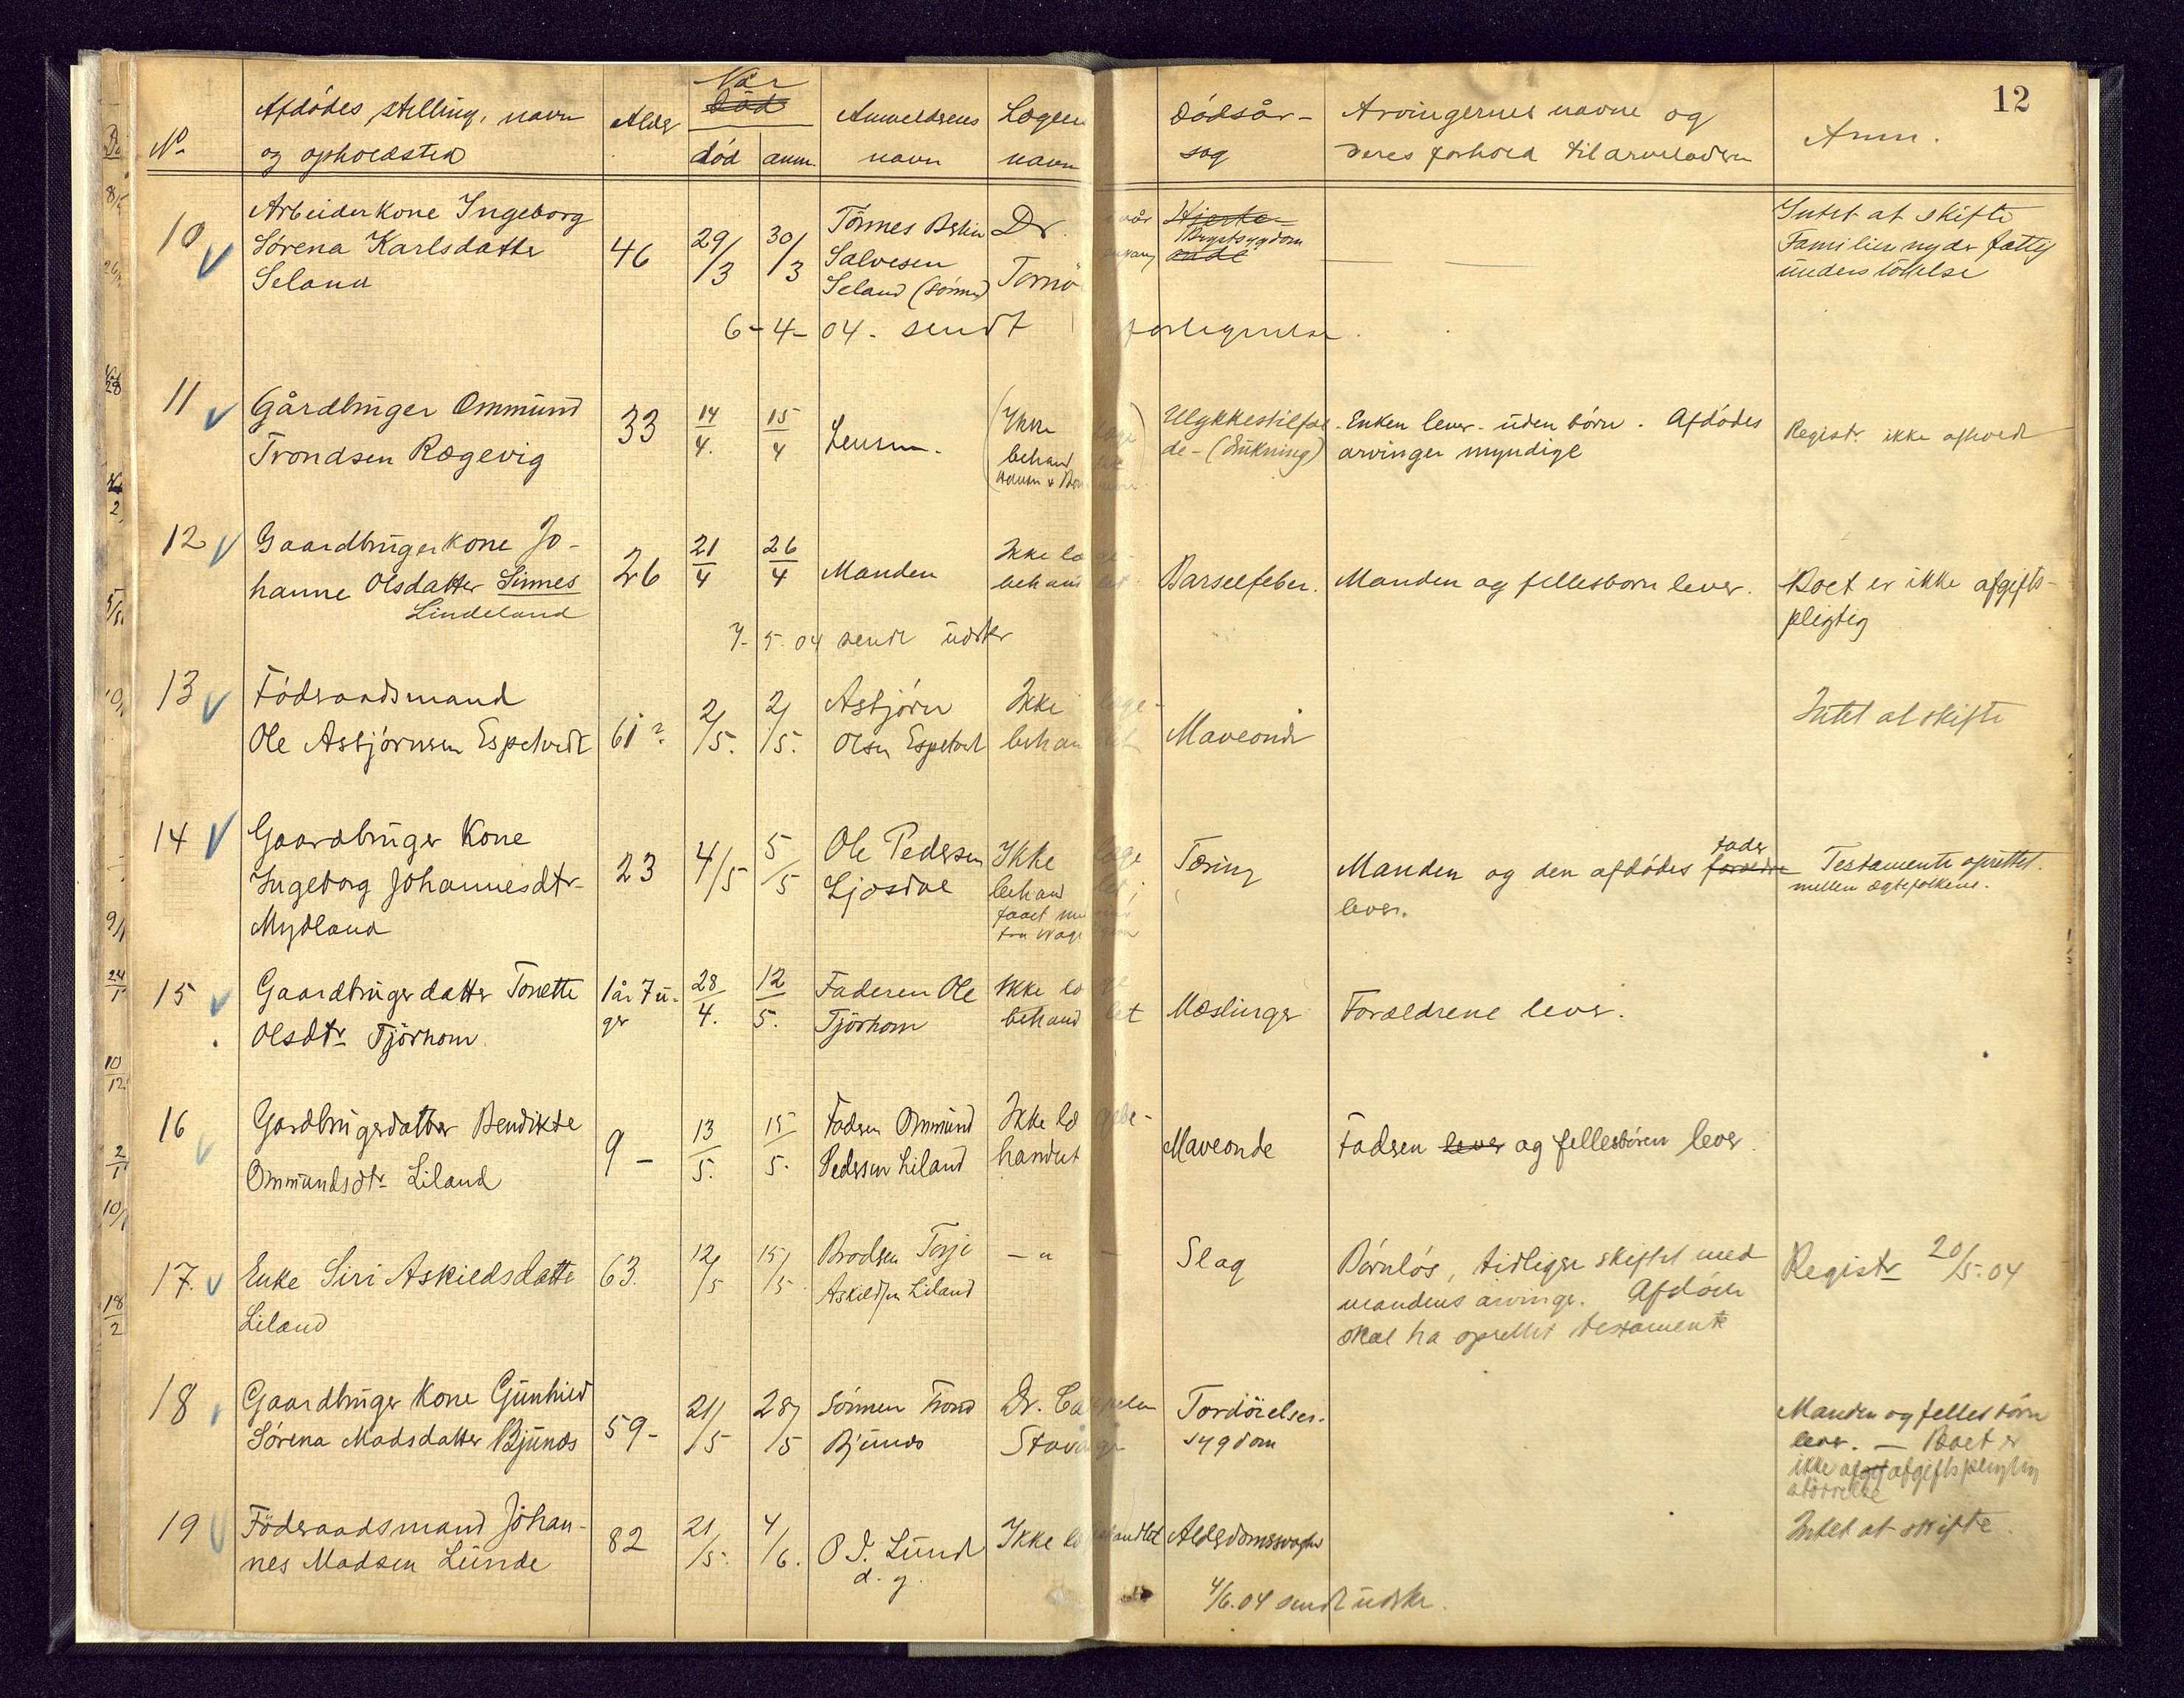 12
No Afdødes stilling, navn
og opholdssted
Alder
Når
død
død anm.
Anmelderens
navn
Lægens
navn
Dødsår-
sag
Arvingernes navne og
deres forhold til arveladeren
Anm.
10 Arbeiderkone Ingeborg
Sørena Karlsdatter
Seland
46
29/3
30/3
Tönnes
Salvesen
Seland (sönnen)
Dr.
Hjerte-
Brystsygdom
onde
Intet at skifte
Familien nyder fattig
understöttelse
6-4-04 - sendt
11 Gårdbruger Ommund
Trondsen Rægevig
33
14/4.
15/4
Lensm.
(Ikke læge
behand let
Ulykkestilfæl
de - (Drukning)
Enken lever - uden börn. Afdödes
arvinger myndige
Registr. ikke afholdt
12 Gaardbruger kone Jo-
hanne Olsdatter Sinnes
Lindeland
26
21/4
26/4
Manden
Ikke læge-
behandlet.
Barselfeber.
Manden og fellesborn lever.
Boet er ikke afgifts-
pligtig
7-5-04 sendt udskr
13 Föderaadsmand
Ole Asbjørnsen Espetvedt
61?
2/5.
2/5.
Asbjörn
Olsen Espetvedt
Ikke læge-
behandlet
Maveonde
Intet at skifte
14 Gaardbruger Kone
Ingeborg Johannesdtr.
Mydland
23
4/5
5/5
Ole Pedersen
Ljosdal
Ikke læge
behandlet;
faaet
Tæring
Manden og den afdødes forældre fader
lever.
Testamente oprettet
mellem ægtefolkene.
15 Gaardbruger datter Tonette
Olsdtr. Tjörhom.
1 år 7 u-
ger
28/4.
12/5.
Faderen Ole
Tjörhom
Ikke læge
behandlet
Mæslinger
Forældrene lever.
16 Gardbrugerdatter Bendikte
Ommundsdtr. Liland
9 -
13/5.
15/5.
Faderen Ommund
Pedersen Liland
Ikke lægebe-
handlet
Maveonde
Faderen lever og fellesbören lever.
17. Enke Siri Askildsdatter
Liland
63.
12/5
15/5.
Broderen Terje
Askildsen Liland
- " -
Slag
Börnlös, tidligere skiftet med
mandens arvinger. Afdöde
skal ha oprettet testamente
Registr 20/5.04
18 Gaardbruger Kone Gunhild
Sørena Madsdatter Bjunes
59-
21/5
28/5
Sönnen Trond
Bjunes
Dr. Cappelen
Stavanger
Fordöielses-
sygdom
Manden og felles börn
lever. - Boet er
ikke afgif afgiftspligtig
störrelse
19 Föderaadsmand Johan-
nes Madsen Lunde
82
21/5.
4/6.
P. J. Lund
d. y.
Ikke lægebehandlet
Alderdomssvaghed
Intet at skifte.
4/6.04 sendt udskr.